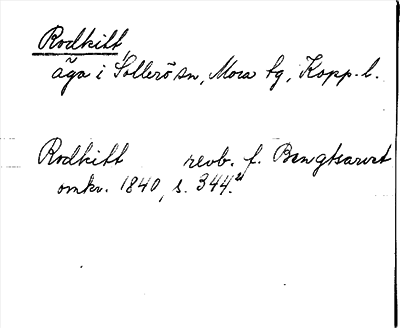 Rodkitt,
äga i Sollerö sn, Mora tg, Kopp. l.
Rodkitt revb. f. Bengtsarvet
omkr. 1840, s. 344.